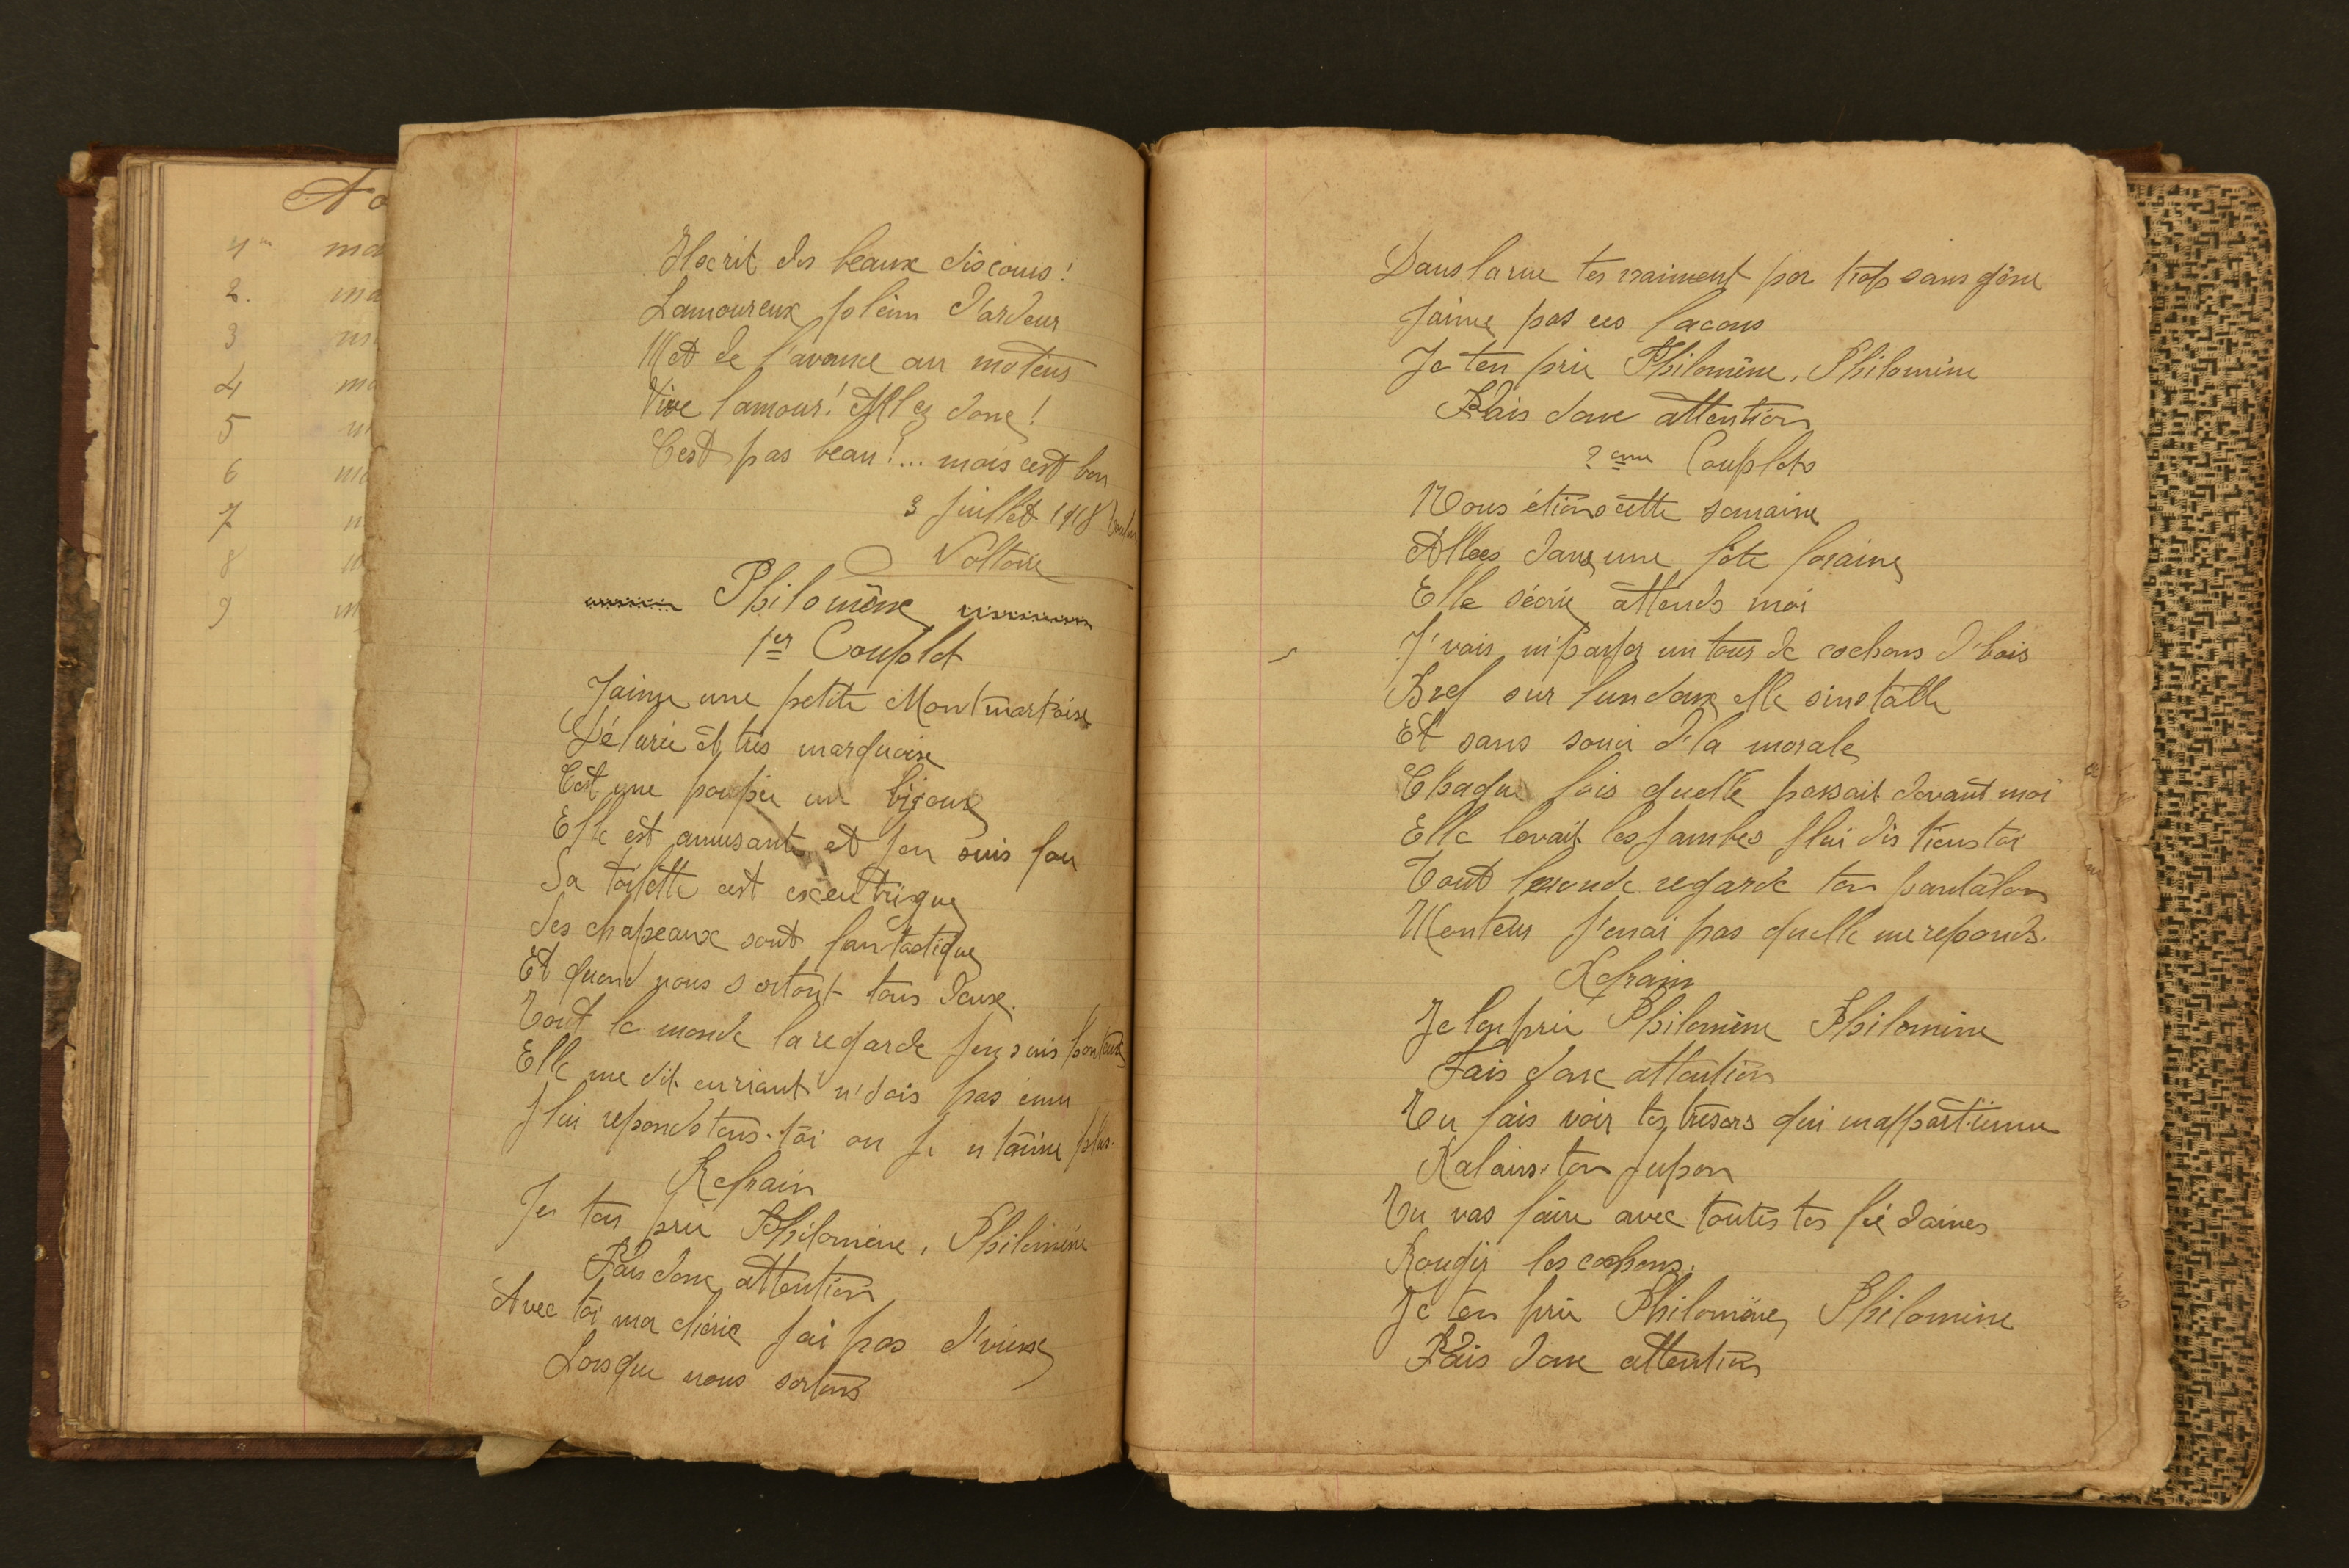 No
1er ma
2. ma
3 m
4 ma
5 m
6 ma
7 m
8 m
9 m
Il ecrit des beaux discours!
Lamoureux plein d'ardeur
Met de l'avance au moteur
Vive l'amour! Allez donc!
C'est pas beau!... mais c'est bon
3 Juillet 1918 Toulon
Voltaire
Philomène
1er Couplet
J'aime une petite Montmartoise
Délurée et très marquoise
C'est une poupée un bijoux
Elle est amusante et j'en suis fou
Sa toilette est exentrique
Ses chapeaux sont fantastique
Et quand nous sortont tous deux.
Tout le monde la regarde j'en suis honteux
Elle me dit en riant n'sois pas ému
J'lui reponds tens-toi ou je n t'aime plus.
Refrain
Je ten prie Philomène, Philomène
Fais donc attention
Avec toi ma chérie j'ai pas d'veine
Lorsque nous sortons
Dans la rue tes vraiment par trop sans gêne
J'aime pas ces facons
Je ten prie Philomène, Philomène
Fais donc attention
2eme Couplets
Nous étions cette semaine
Allées dans une fête foraine
Elle s'écrie attends moi
J'vais m'payer un tour de cochons d'bois
Bref sur l'un deux elle sinstalle
Et sans souci d'la morale
Chaque fois quelle passait devant moi
Elle levait les jambes j'lui dis tiens toi
Tout lemonde regarde ton pantalon
Menteur j'enai pas quelle me reponds.
Refrain
Je ten prie Philomène Philomène
Fais donc attention
Tu fais voir tes trésors qui mappartienne
Rabaiss-ton jupon
Tu vas faire avec toutes tes fédaines
Rougir les cochons.
Je ten prie Philomène, Philomène
Fais donc attention